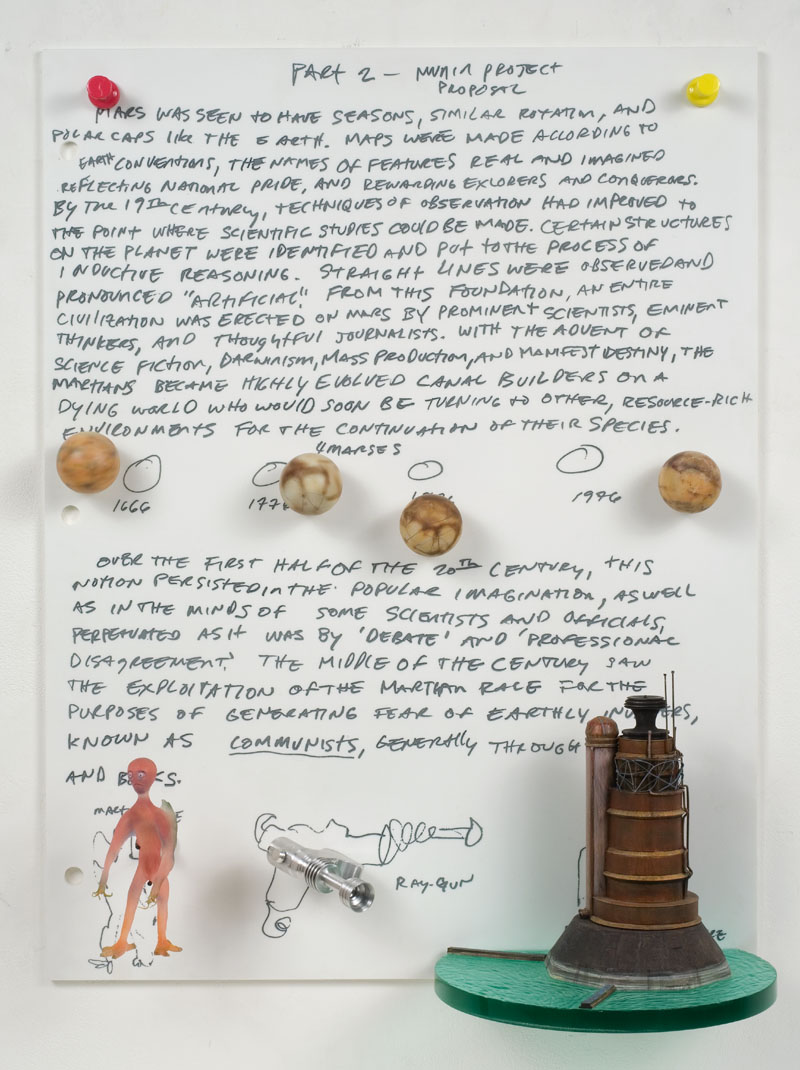 PART 2 — MVMIM PROJECT
PROPOSAL
MARS WAS SEEN TO HAVE SEASONS, SIMILAR ROTATION, AND
POLAR CAPS LIKE THE EARTH. MAPS WERE MADE ACCORDING TO
EARTH CONVENTIONS, THE NAMES OF FEATURES REAL AND IMAGINED
REFLECTING NATIONAL PRIDE, AND REWARDING EXLORERS AND CONQUERORS.
BY THE 19TH CENTURY, TECHNIQUES OF OBSERVATION HAD IMPROVED TO
THE POINT WHERE SCIENTIFIC STUDIES COULD BE MADE. CERTAIN STRUCTURES
ON THE PLANET WERE IDENTIFIED AND PUT TO THE PROCESS OF
INDUCTIVE REASONING. STRAIGHT LINES WERE OBSERVED AND
PRONOUNCED "ARTIFICIAL". FROM THIS FOUNDATION, AN ENTIRE
CIVILIZATION WAS ERECTED ON MARS BY PROMINENT SCIENTISTS, EMINENT
THINKERS, AND THOUGHTFUL JOURNALISTS. WITH THE ADVENT OF
SCIENCE FICTION, DARWINISM, MASS PRODUCTION, AND MANIFEST DESTINY, THE
MARTIANS BECAME HIGHLY EVOLVED CANAL BUILDERS ON A
DYING WORLD WHO WOULD SOON BE TURNING TO OTHER, RESOURCE-RICH
ENVIRONMENTS FOR THE CONTINUATION OF THEIR SPECIES.
4 MARSES
1666 177 1976
OVER THE FIRST HALF OF THE 20TH CENTURY, THIS
NOTION PERSISTED IN THE POPULAR IMAGINATION, AS WELL
AS IN THE MINDS OF SOME SCIENTISTS AND OFFICIALS,
PERPETUATED AS IT WAS BY 'DEBATE' AND 'PROFESSIONAL
DISAGREEMENT.' THE MIDDLE OF THE CENTURY SAW
THE EXPLOITATION OF THE MARTIAN RACE FOR THE
PURPOSES OF GENERATING FEAR OF EARTHLY
KNOWN AS COMMUNISTS, GENERALLY THROUGH
AND
RAY-GUN